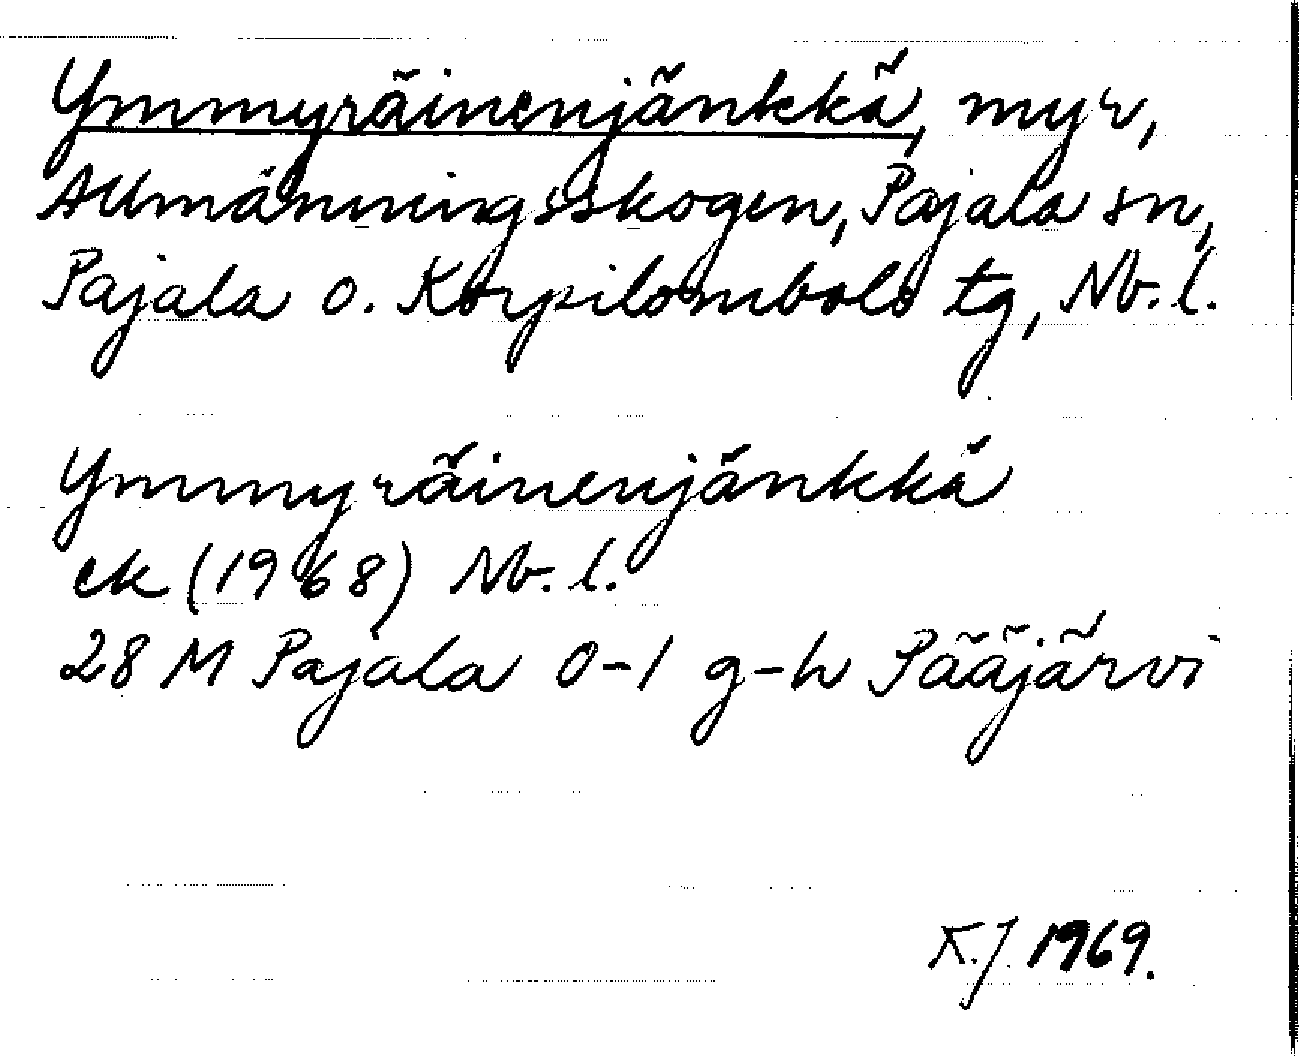 Ymmyräinenjänkkä, myr,
Allmänningsskogen, Pajala sn,
Pajala o. Korpilombolo tg, Nb. l.
Ymmyräinenjänkkä
ek (1968) Nb. l.
28 M Pajala 0-1 g-h Pääjärvi
K.J. 1969.